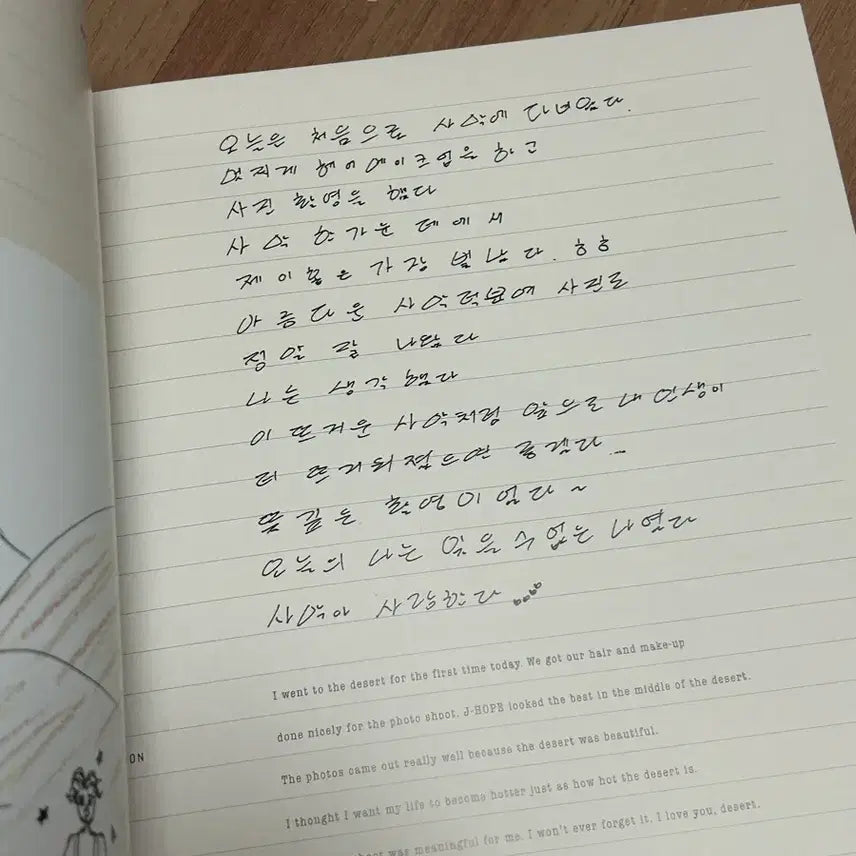 오늘은 처음으로 사막에 다녀왔다.
멋지게 헤어메이크업을 하고
사진 촬영을 했다
사막 한가운데에서
제이홉은 가장 빛났다. ㅎㅎ
아름다운 사막덕분에 사진도
정말 잘 나왔다
나는 생각했다
이 뜨거운 사막처럼 앞으로 내 인생이
더 뜨거워졌으면 좋겠다...
뜻깊은 촬영이었다~
오늘의 나는 잊을 수 없는 나였다
사막아 사랑한다
I went to the desert for the first time today. We got our hair and make-up
done nicely for the photo shoot. J-HOPE looked the best in the middle of the desert.
The photos came out really well because the desert was beautiful.
ON
I thought I want my life to become hotter just as how hot the desert is.
was meaningful for me. I won't ever forget it. I love you, desert.